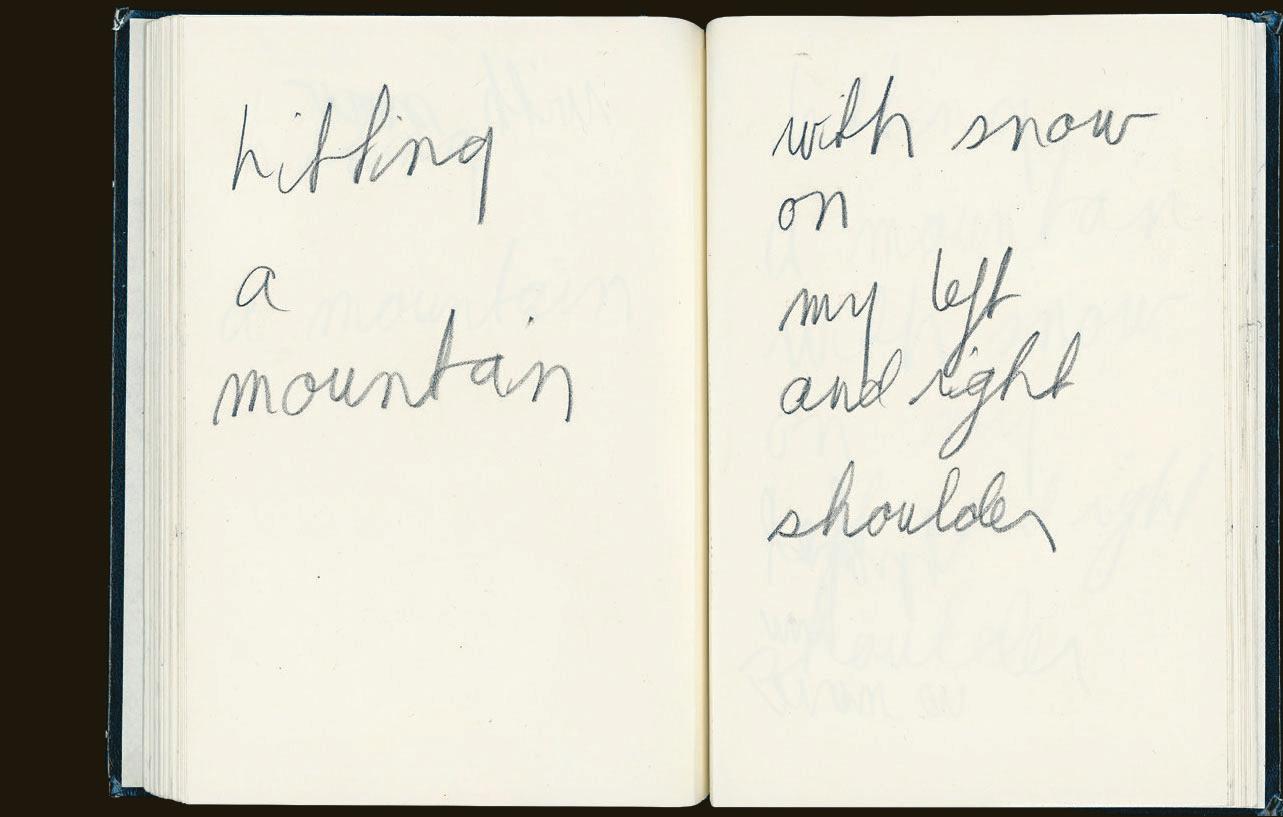 hitting
a
mountain
with snow
on
my left
and right
shoulder